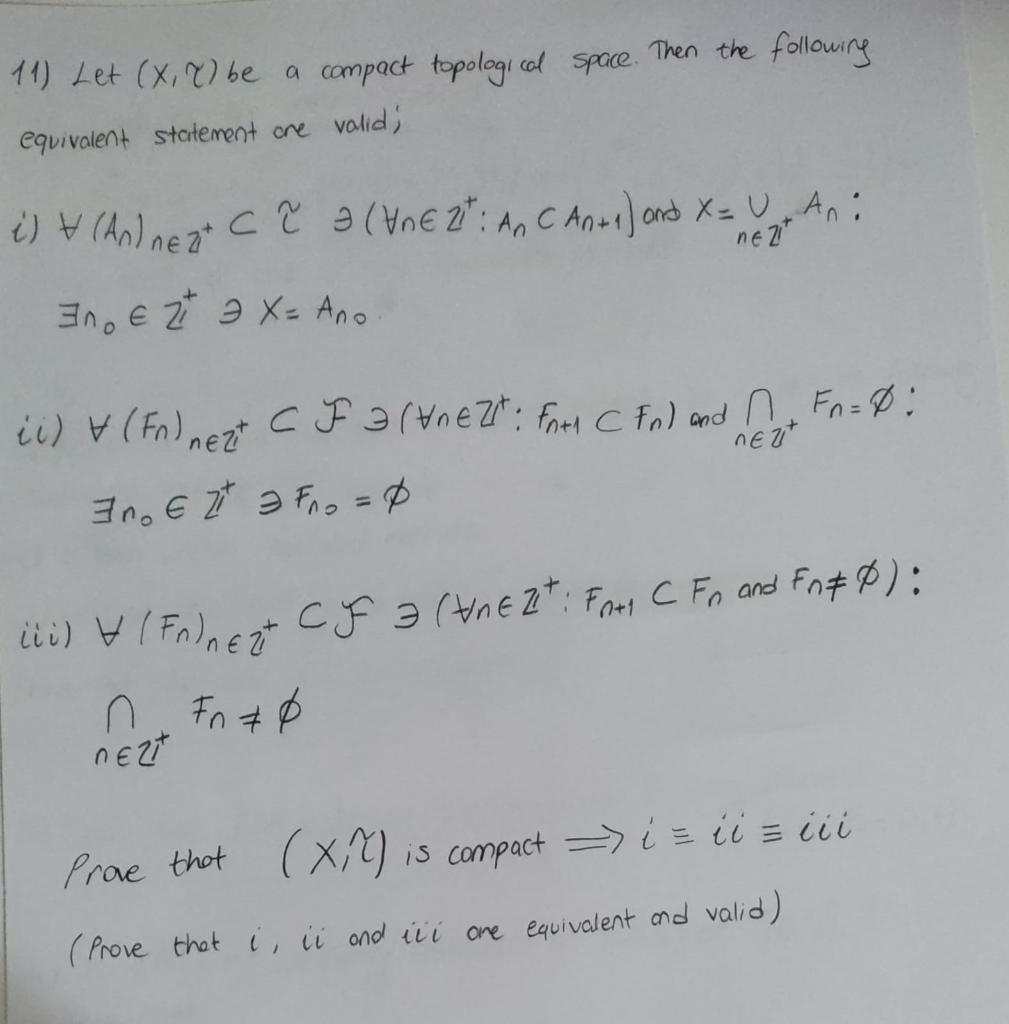 11) Let (X, τ) be a compact topological space. Then the following
equivalent statement are valid;
i) ∀ (An)n∈ℤ⁺ ⊂ τ ∋ (∀n∈ℤ⁺: An ⊂ An+1) and X = ∪n∈ℤ⁺ An :
∃n₀ ∈ ℤ⁺ ∋ X = An₀.
ii) ∀ (Fn)n∈ℤ⁺ ⊂ ℱ ∋ (∀n∈ℤ⁺: Fn+1 ⊂ Fn) and ∩n∈ℤ⁺ Fn = ∅ :
∃n₀ ∈ ℤ⁺ ∋ Fn₀ = ∅
iii) ∀ (Fn)n∈ℤ⁺ ⊂ ℱ ∋ (∀n∈ℤ⁺: Fn+1 ⊂ Fn and Fn ≠ ∅) :
∩n∈ℤ⁺ Fn ≠ ∅
Prove that (X, τ) is compact ⟹ i ≡ ii ≡ iii
(Prove that i, ii and iii are equivalent and valid)